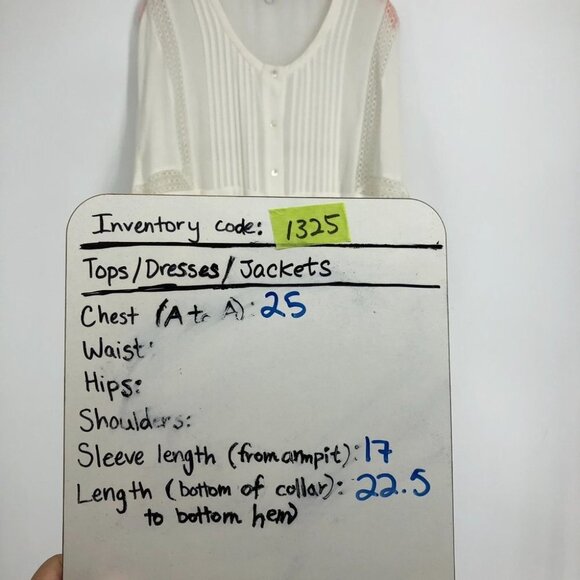 Inventory code: 1325
Tops/Dresses/Jackets
Chest (A to A): 25
Waist:
Hips:
Shoulders:
Sleeve length (from armpit): 17
Length (bottom of collar): 22.5
to bottom hem)